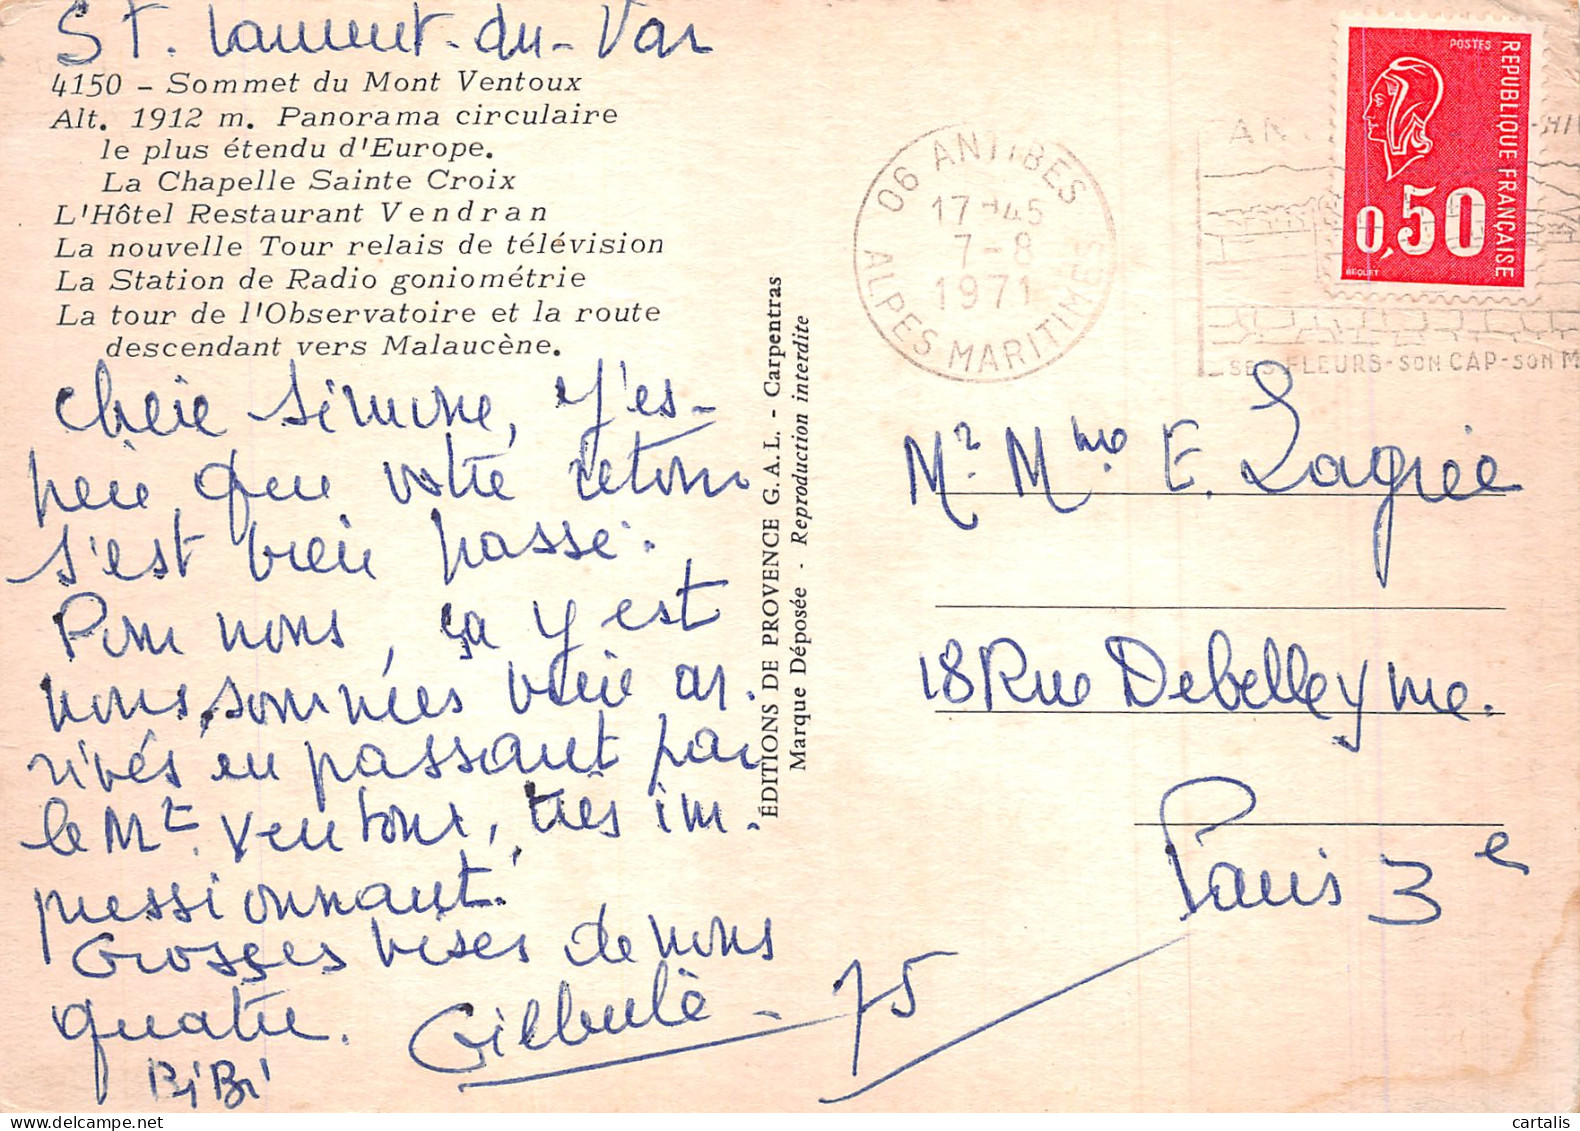 St. Laurent-du-Var
4150 – Sommet du Mont Ventoux
Alt. 1912 m. Panorama circulaire
le plus étendu d'Europe.
La Chapelle Sainte Croix
L'Hôtel Restaurant Vendran
La nouvelle Tour relais de télévision
La Station de Radio goniométrie
La tour de l'Observatoire et la route
descendant vers Malaucène.
Chère Simone, J'es-
père que votre retour
s'est bien passé.
Pour nous, ça y est
nous sommées bien ar.
rivés en passant par
le Mt. Ventoux, très im.
pressionnant!
Grosses bises de nous
quatre. Gilberte
BiBi
ÉDITIONS DE PROVENCE G.A.L. - Carpentras
Marque Déposée - Reproduction interdite
06 ANTIBES
17-H45
7-8
1971
ALPES MARITIMES
SES FLEURS-SON CAP-SON M
POSTES
REPUBLIQUE FRANÇAISE
0,50
BEQUET
Mr. Mme E. Lagrée
18 Rue Debelleyme.
Paris 3e
75
cartalis